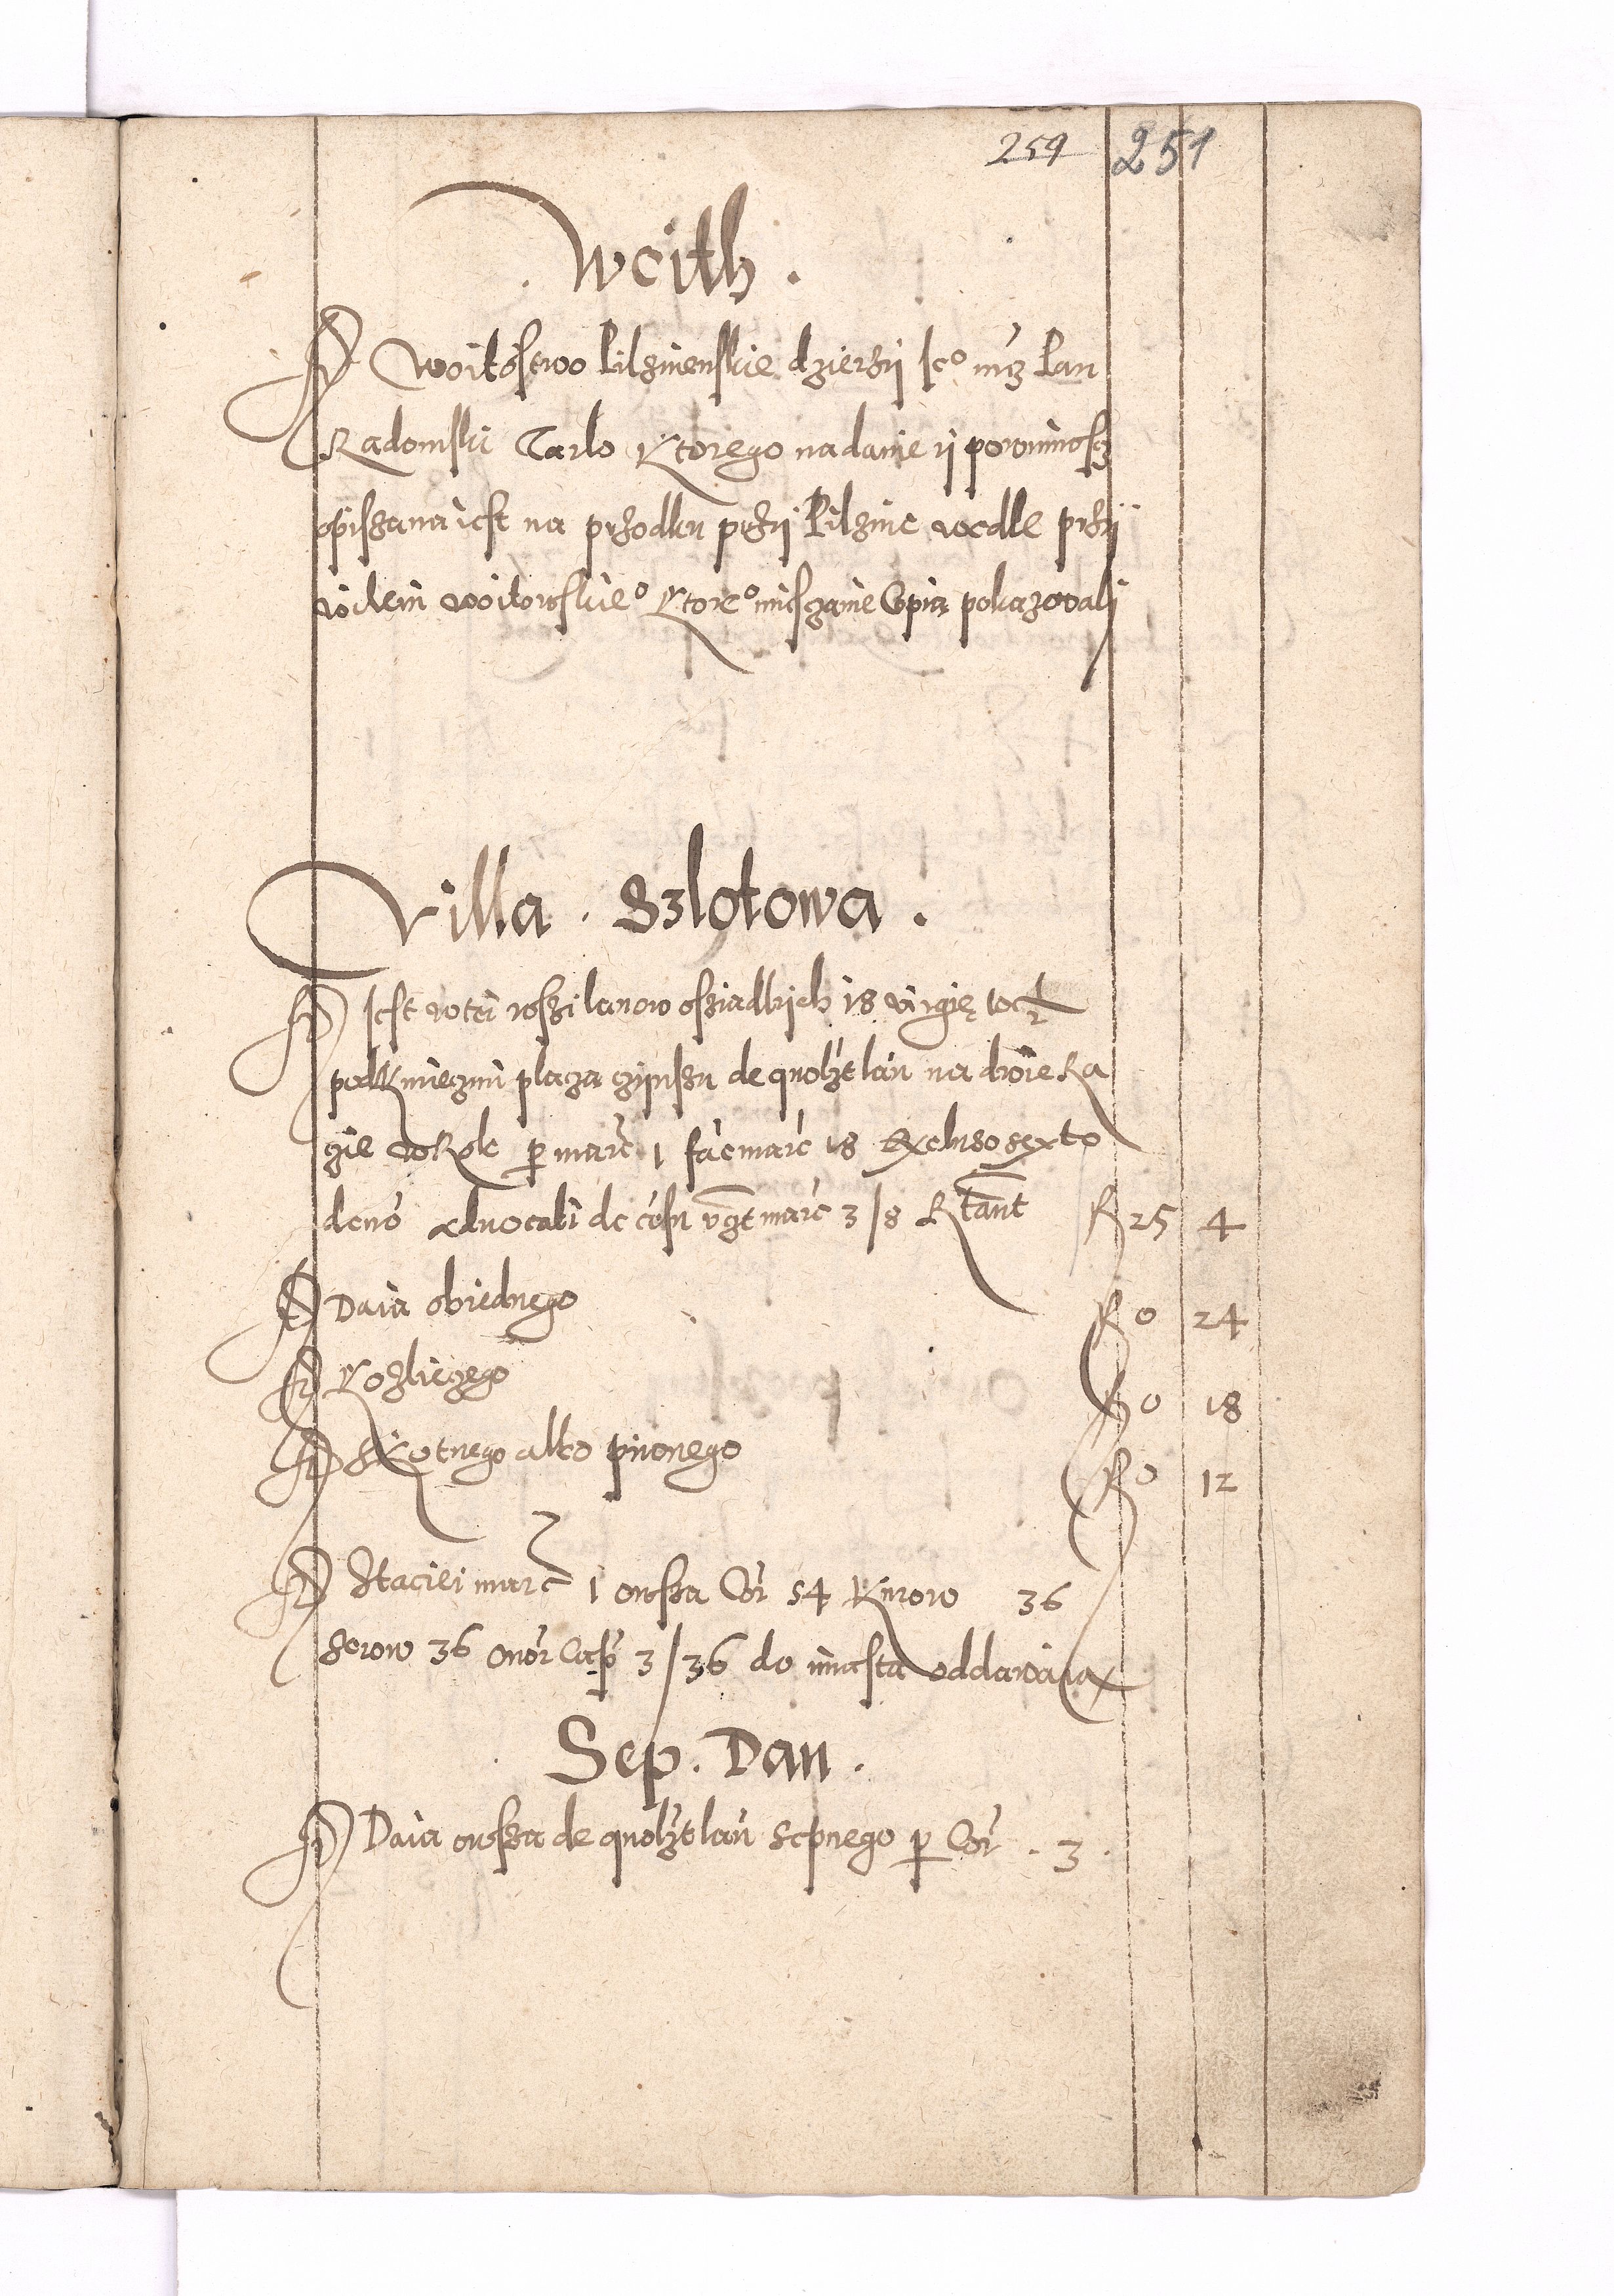 259 251
Woith .
Woitostwo Pilznenskie dzierzij Jeº mcz Pan
Radomski Tarlo Ktorego nadanie ij powinnoscz
opiszana iest na przodku przij Pilznie wedle przij
wileiu woitowskieº Ktoreº miesczanie Copia pokazowali
Villa . Szlotowa .
Jest w tei wszi lanow osziadlijch 18
pod Kmieczmi placza czijnszu de quolzt lan na dwie Ra
zie w Rok per marc 1 fac marc 18 Excluso sexto
deno advocati de marc 3/8 R 25 4
Daia obiednego R 0 24
Kozliczego R 0 18
Skotnego albo piwnego R 0 12
Staciei marc 1 owsza Cor 54 Kurow 36
Serow 36 Ovor Casp 3/36 do miasta oddawaia
Sep . Dan .
Daia owsza de quolzt lan Sepnego per Cor . 3 .